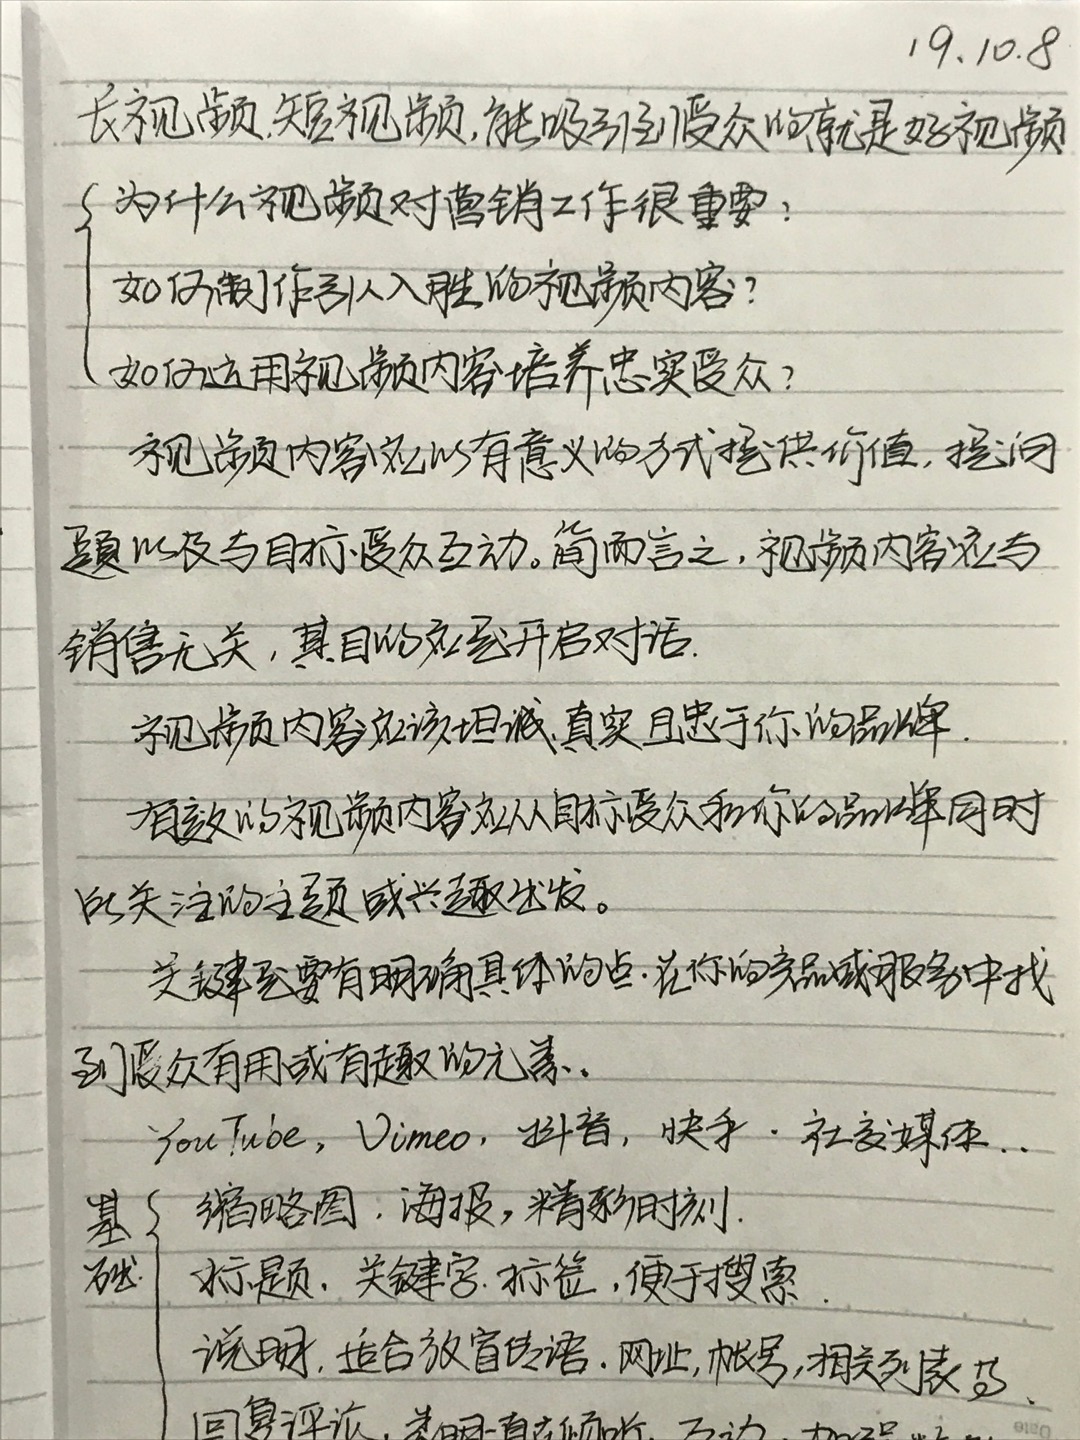 19.10.8
长视频、短视频,能吸引到受众的就是好视频
为什么视频对营销工作很重要?
如何制作引人入胜的视频内容?
如何运用视频内容培养忠实受众?
视频内容应以有意义的方式提供价值,提问
题以及与目标受众互动。简而言之,视频内容应与
销售无关,其目的应是开启对话.
视频内容应该坦诚、真实且忠于你的品牌.
有效的视频内容应从目标受众和你的品牌同时
所关注的主题或兴趣出发。
关键是要有明确具体的点.在你的产品或服务中找
到受众有用或有趣的元素.
YouTube, Vimeo, 抖音, 快手.社交媒体...
基础
缩略图.海报,精彩时刻.
标题.关键字.标签,便于搜索.
说明,适合放宣传语.网址,帐号,相关列表等.
回复评论,表明